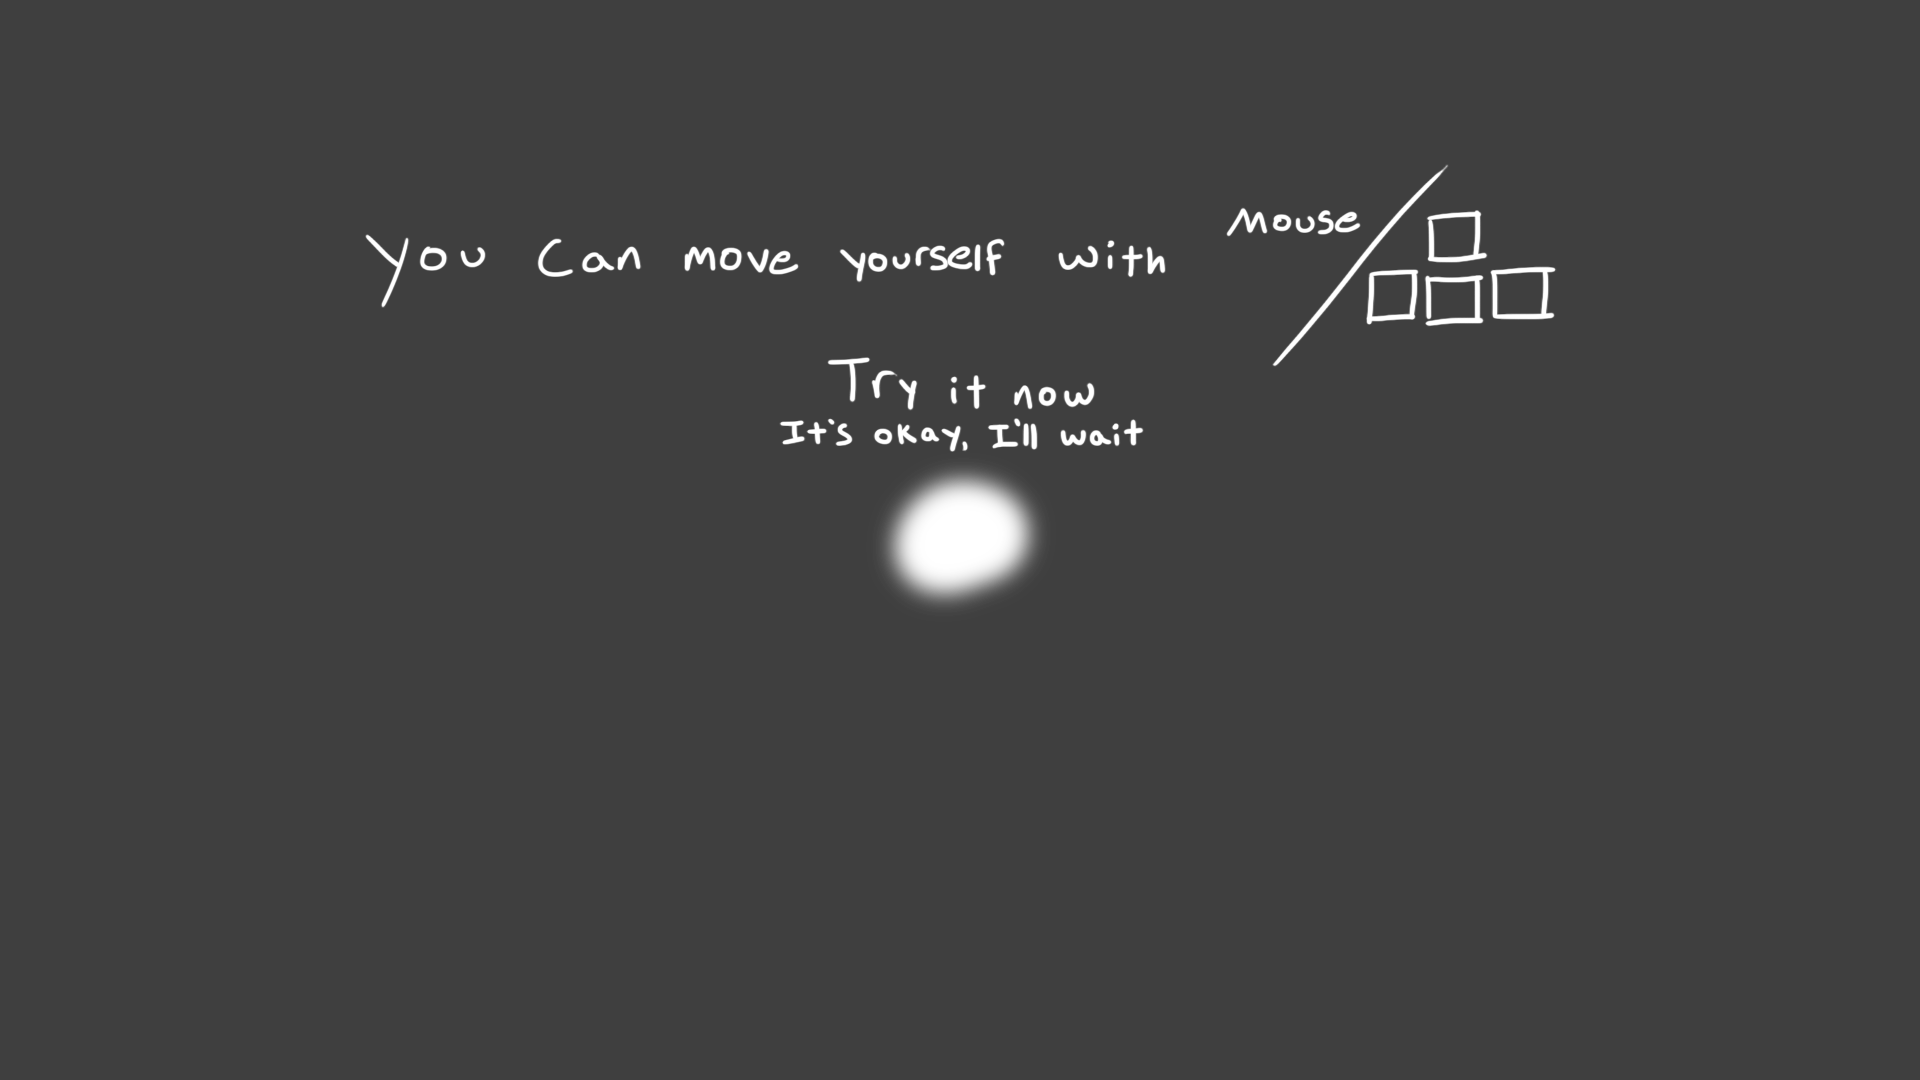 You can move yourself with mouse/
Try it now
It's okay, I'll wait